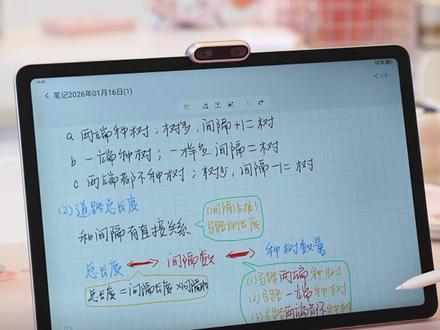 笔记2026年01月16日(1)
a. 两端种树；树多，间隔+1=树
b. 一端种树；一样多 间隔=树
c. 两端都不种树；树少，间隔-1=树
(2)道路总长度
和间隔有直接关系
(间隔占据)
马路的长度
总长度 ↔ 间隔数 ↔ 种树数量
总长度=间隔长度×间隔数
(1)马路两端种树
(2)马路一端种树
(3)马路两端都不种树